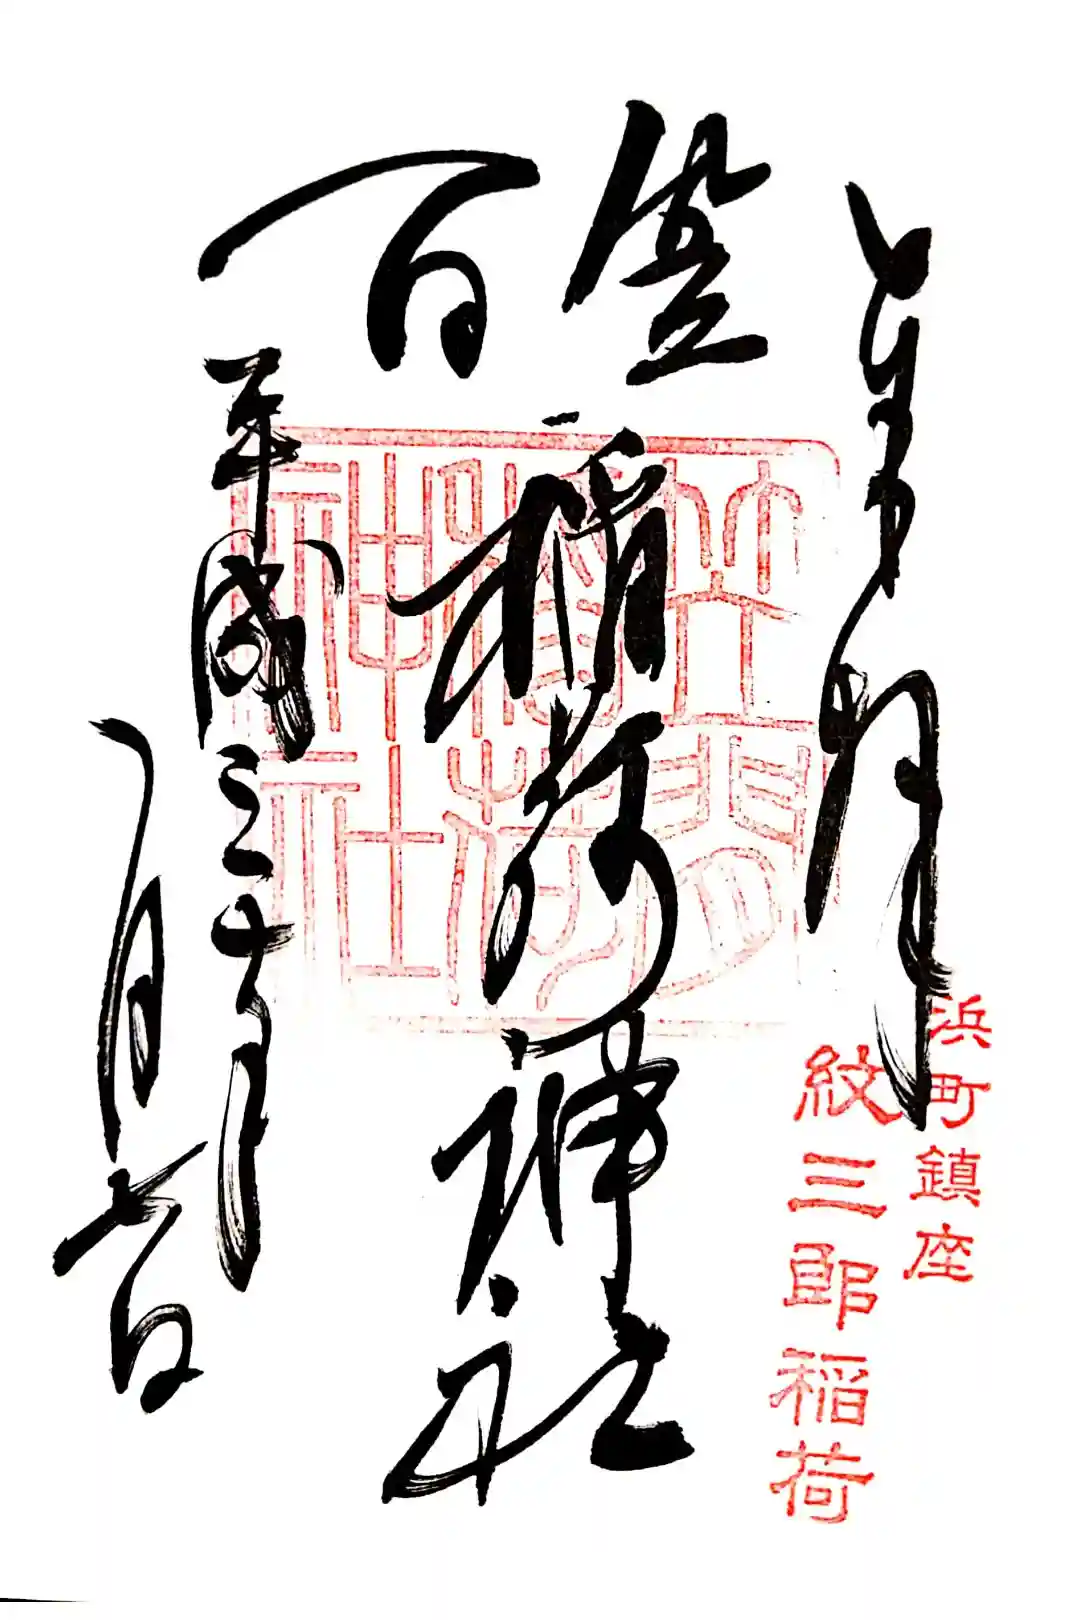 浜町鎮座
紋三郎稲荷
笠間
稲荷神社
笠間
稲荷
神社
平成三十年